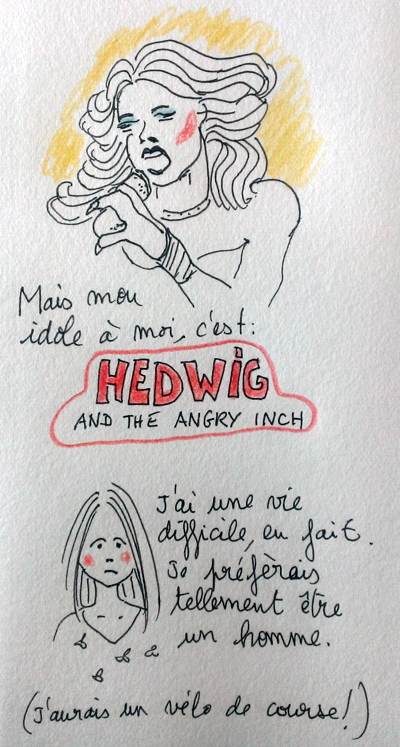 Mais mon
idole à moi, c'est:
HEDWIG
AND THE ANGRY INCH
J'ai une vie
difficile, en fait.
Je préfèrais
tellement être
un homme.
(J'aurais un vélo de course!)